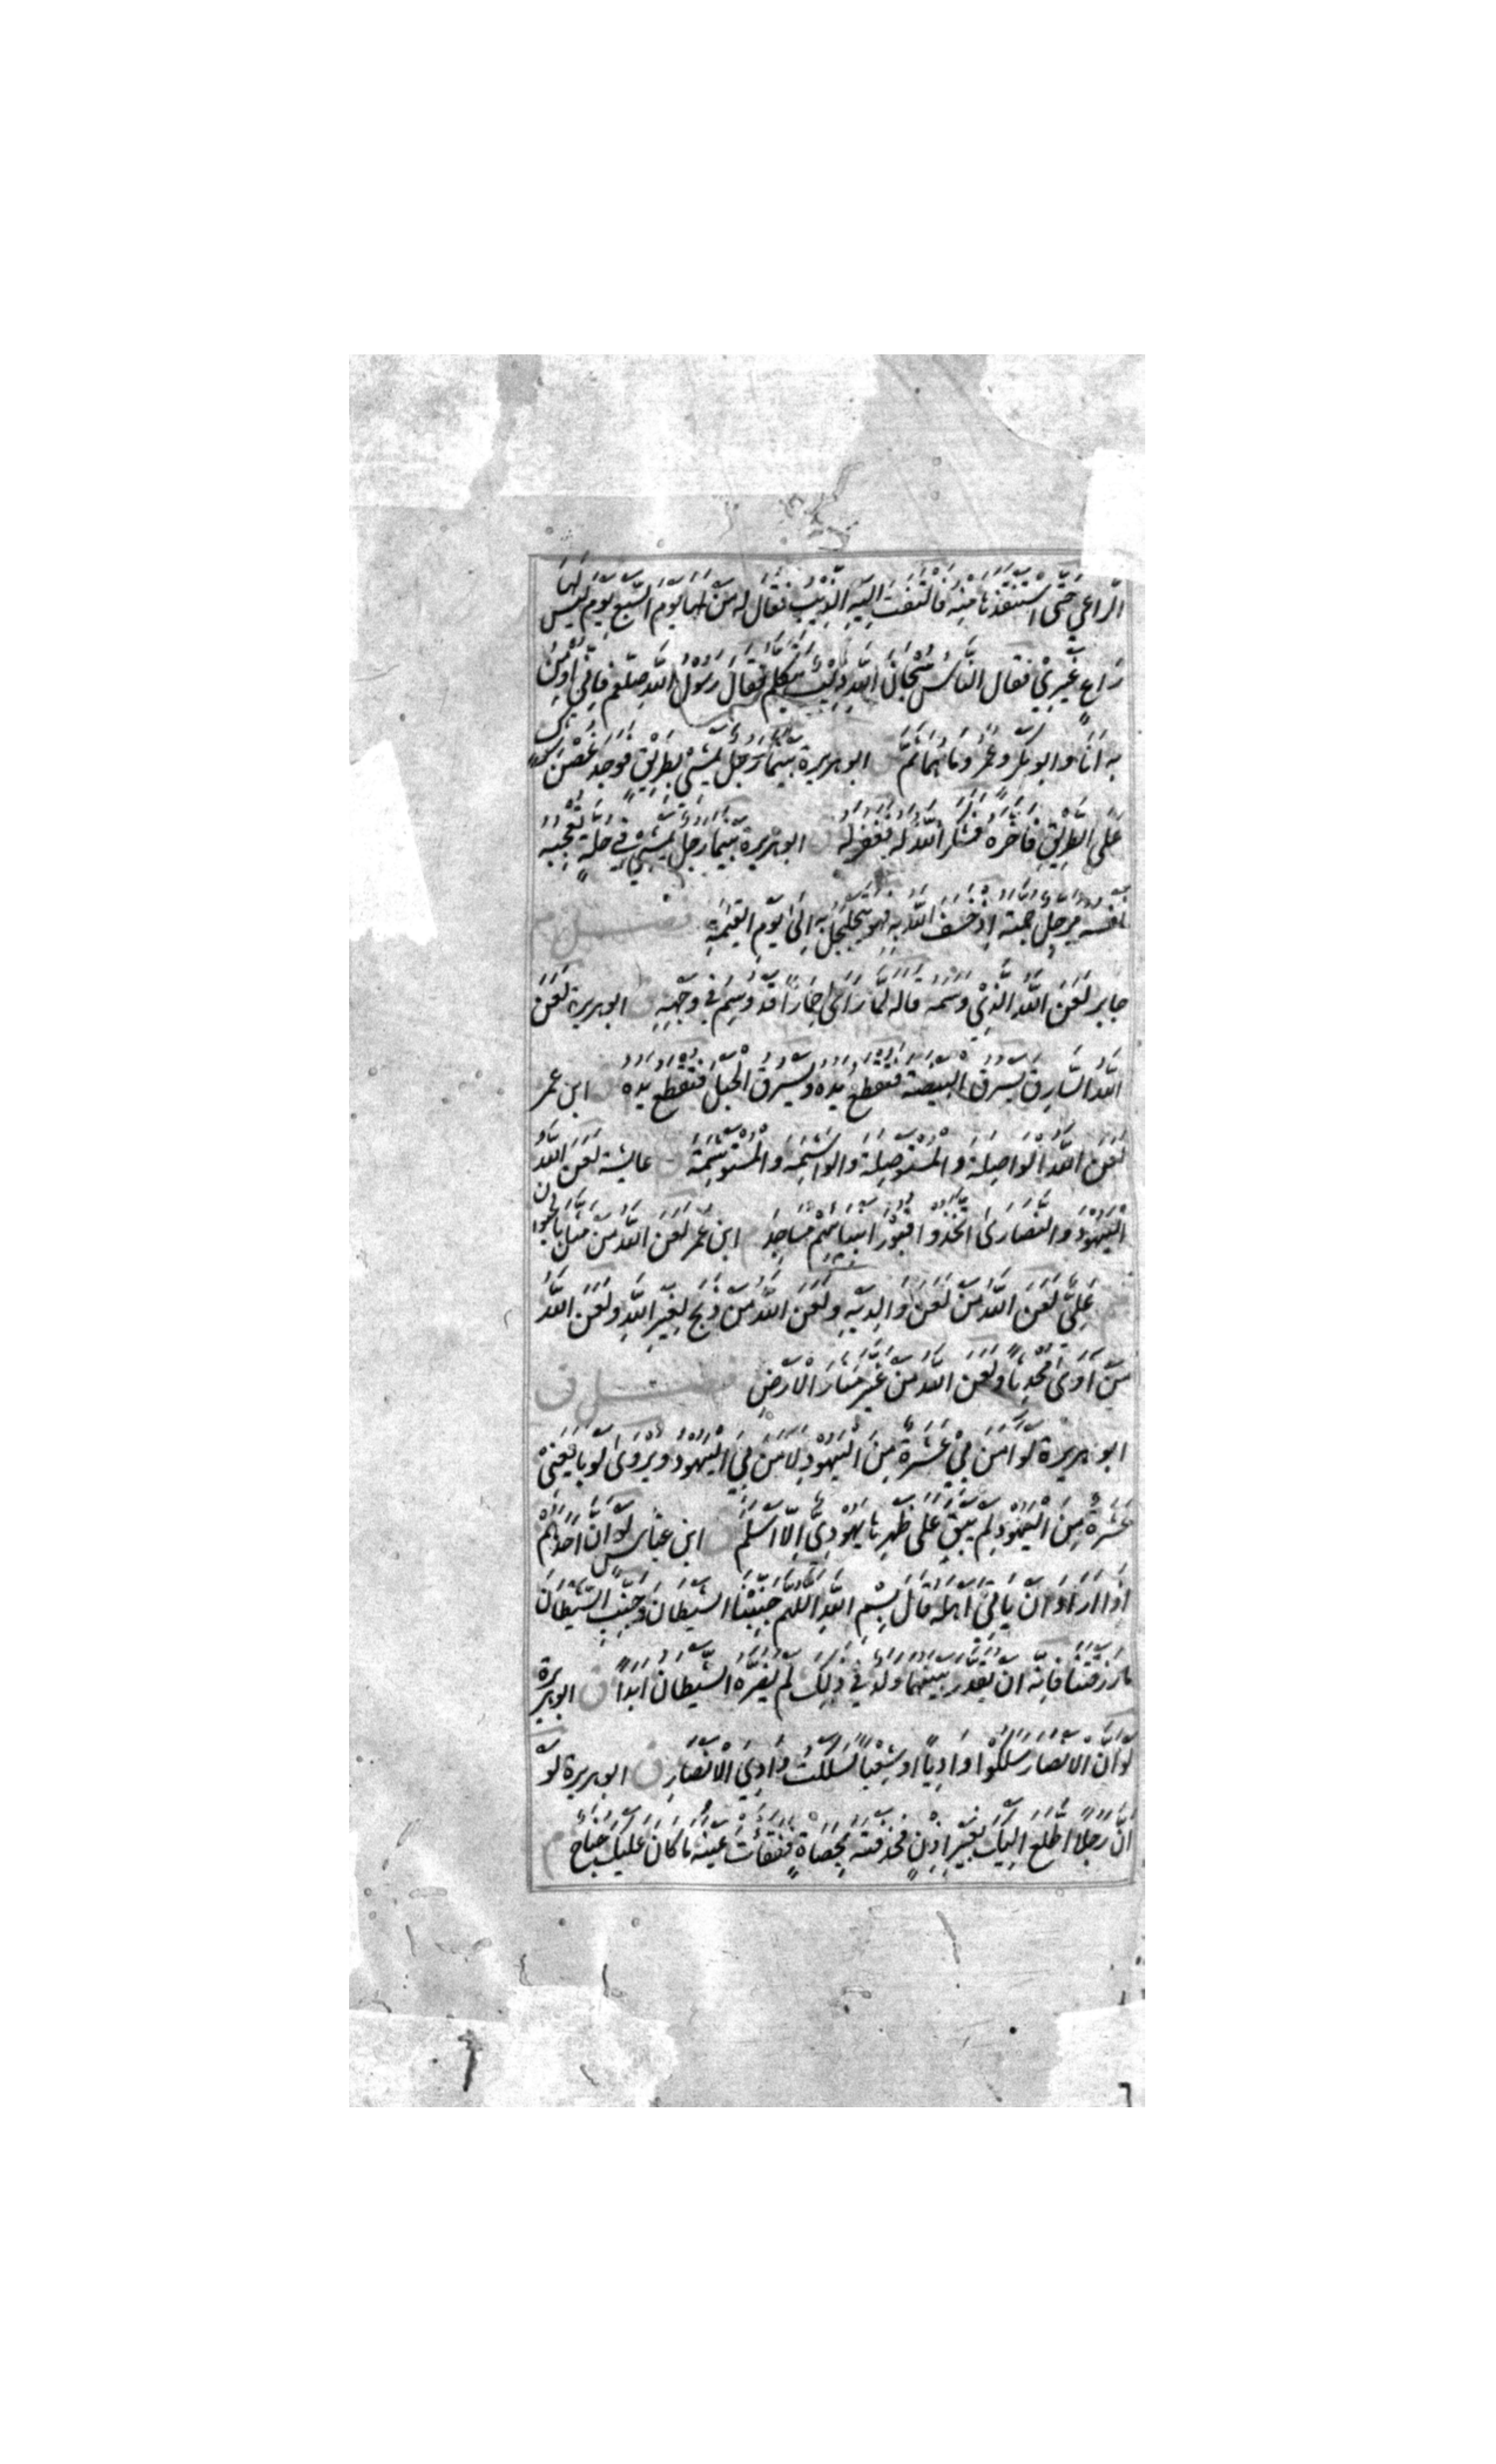 الرَّاعِي حَتَّى اسْتَنْقَذَهَا مِنْهُ فَالْتَفَتَ اِلَيْهِ الذِّئْبُ فَقَالَ لَهُ مَنْ لَهَا يَوْمَ السَّبُعِ يَوْمَ لَيْسَ لَهَا
رَاعٍ غَيْرِيْ فَقَالَ النَّاسُ سُبْحَانَ اللهِ ذِئْبٌ يَتَكَلَّمُ فَقَالَ رَسُوْلُ اللهِ صلعم فَاِنِّيْ اُوْمِنُ
بِهِ اَنَا وَابُوبَكْرٍ وَعُمَرُ وَمَا هُمَا ثَمَّ ابوهريرة بَيْنَمَا رَجُلٌ يَمْشِيْ بِطَرِيْقٍ فَوَجَدَ غُصْنَ شوكٍ
عَلَى الطَّرِيْقِ فَاَخَّرَهُ فَشَكَرَ اللهُ لَهُ فَغَفَرَ لَهُ ق ابوهريرة بَيْنَمَا رَجُلٌ يَمْشِيْ فِيْ حُلَّةٍ تُعْجِبُهُ
نَفْسُهُ مُرَجِّلٌ جُمَّتَهُ اِذْ خَسَفَ اللهُ بِهِ فَهُوَ يَتَجَلْجَلُ بِهِ اِلَى يَوْمِ الْقِيٰمَةِ فصل م
جابر لَعَنَ اللهُ الَّذِيْ وَسَمَهُ قاله لَمَّا رَاٰى حِمَارًا قَدْ وُسِمَ فِيْ وَجْهِهِ ق ابوهريرة لَعَنَ
اللهُ السَّارِقَ يَسْرِقُ الْبَيْضَةَ فَتُقْطَعُ يَدُهُ وَيَسْرِقُ الْحَبْلَ فَتُقْطَعُ يَدُهُ ق ابن عمر
لَعَنَ اللهُ الْوَاصِلَةَ وَالْمُسْتَوْصِلَةَ وَالْوَاشِمَةَ وَالْمُسْتَوْشِمَةَ ق عايشة لَعَنَ اللهُ
الْيَهُوْدَ وَالنَّصَارٰى اتَّخَذُوا قُبُوْرَ انبيائِهِمْ مَسَاجِدَ ابن عُمَرَ لَعَنَ اللهُ مَنْ مَثَّلَ بِالْحَيَوانِ
م عَلِيٌّ لَعَنَ اللهُ مَنْ لَعَنَ وَالِدَيْهِ وَلَعَنَ اللهُ مَنْ ذَبَحَ لِغَيْرِ اللهِ وَلَعَنَ اللهُ
مَنْ آوَى مُحْدِثًا وَلَعَنَ اللهُ مَنْ غَيَّرَ مَنَارَ الْاَرْضِ فصل ق
ابو هريرة لَوْ اٰمَنَ بِيْ عَشَرَةٌ مِنَ الْيَهُوْدِ لَاٰمَنَ بِيَ الْيَهُوْدُ وَيُرْوٰى لَوْ بَايَعَنِيْ
عَشَرَةٌ مِنَ الْيَهُوْدِ لَمْ يَبْقَ عَلٰى ظَهْرِهَا يَهُوْدِيٌّ اِلَّا اَسْلَمَ ق ابن عباس لَوْ اَنَّ اَحَدَهُمْ
اِذَا اَرَادَ اَنْ يَاْتِيَ اَهْلَهُ قَالَ بِسْمِ اللهِ اللّٰهُمَّ جَنِّبْنَا الشَّيْطَانَ وَجَنِّبِ الشَّيْطَانَ
مَا رَزَقْتَنَا فَاِنَّهُ اَنْ يُقَدَّرْ بَيْنَهُمَا وَلَدٌ فِيْ ذٰلِكَ لَمْ يَضُرَّهُ الشَّيْطَانُ اَبَدًا ق ابوهريرة
لَوْ اَنَّ الْاَنْصَارَ سَلَكُوْا وَادِيًا اَوْ شِعْبًا لَسَلَكْتُ وَادِيَ الْاَنْصَارِ ق ابوهريرة لَوْ
اَنَّ رَجُلًا اطَّلَعَ اِلَيْكَ بِغَيْرِ اِذْنٍ فَخَذَفْتَهُ بِحَصَاةٍ فَفَقَأْتَ عَيْنَهُ مَا كَانَ عَلَيْكَ جُنَاحٌ م